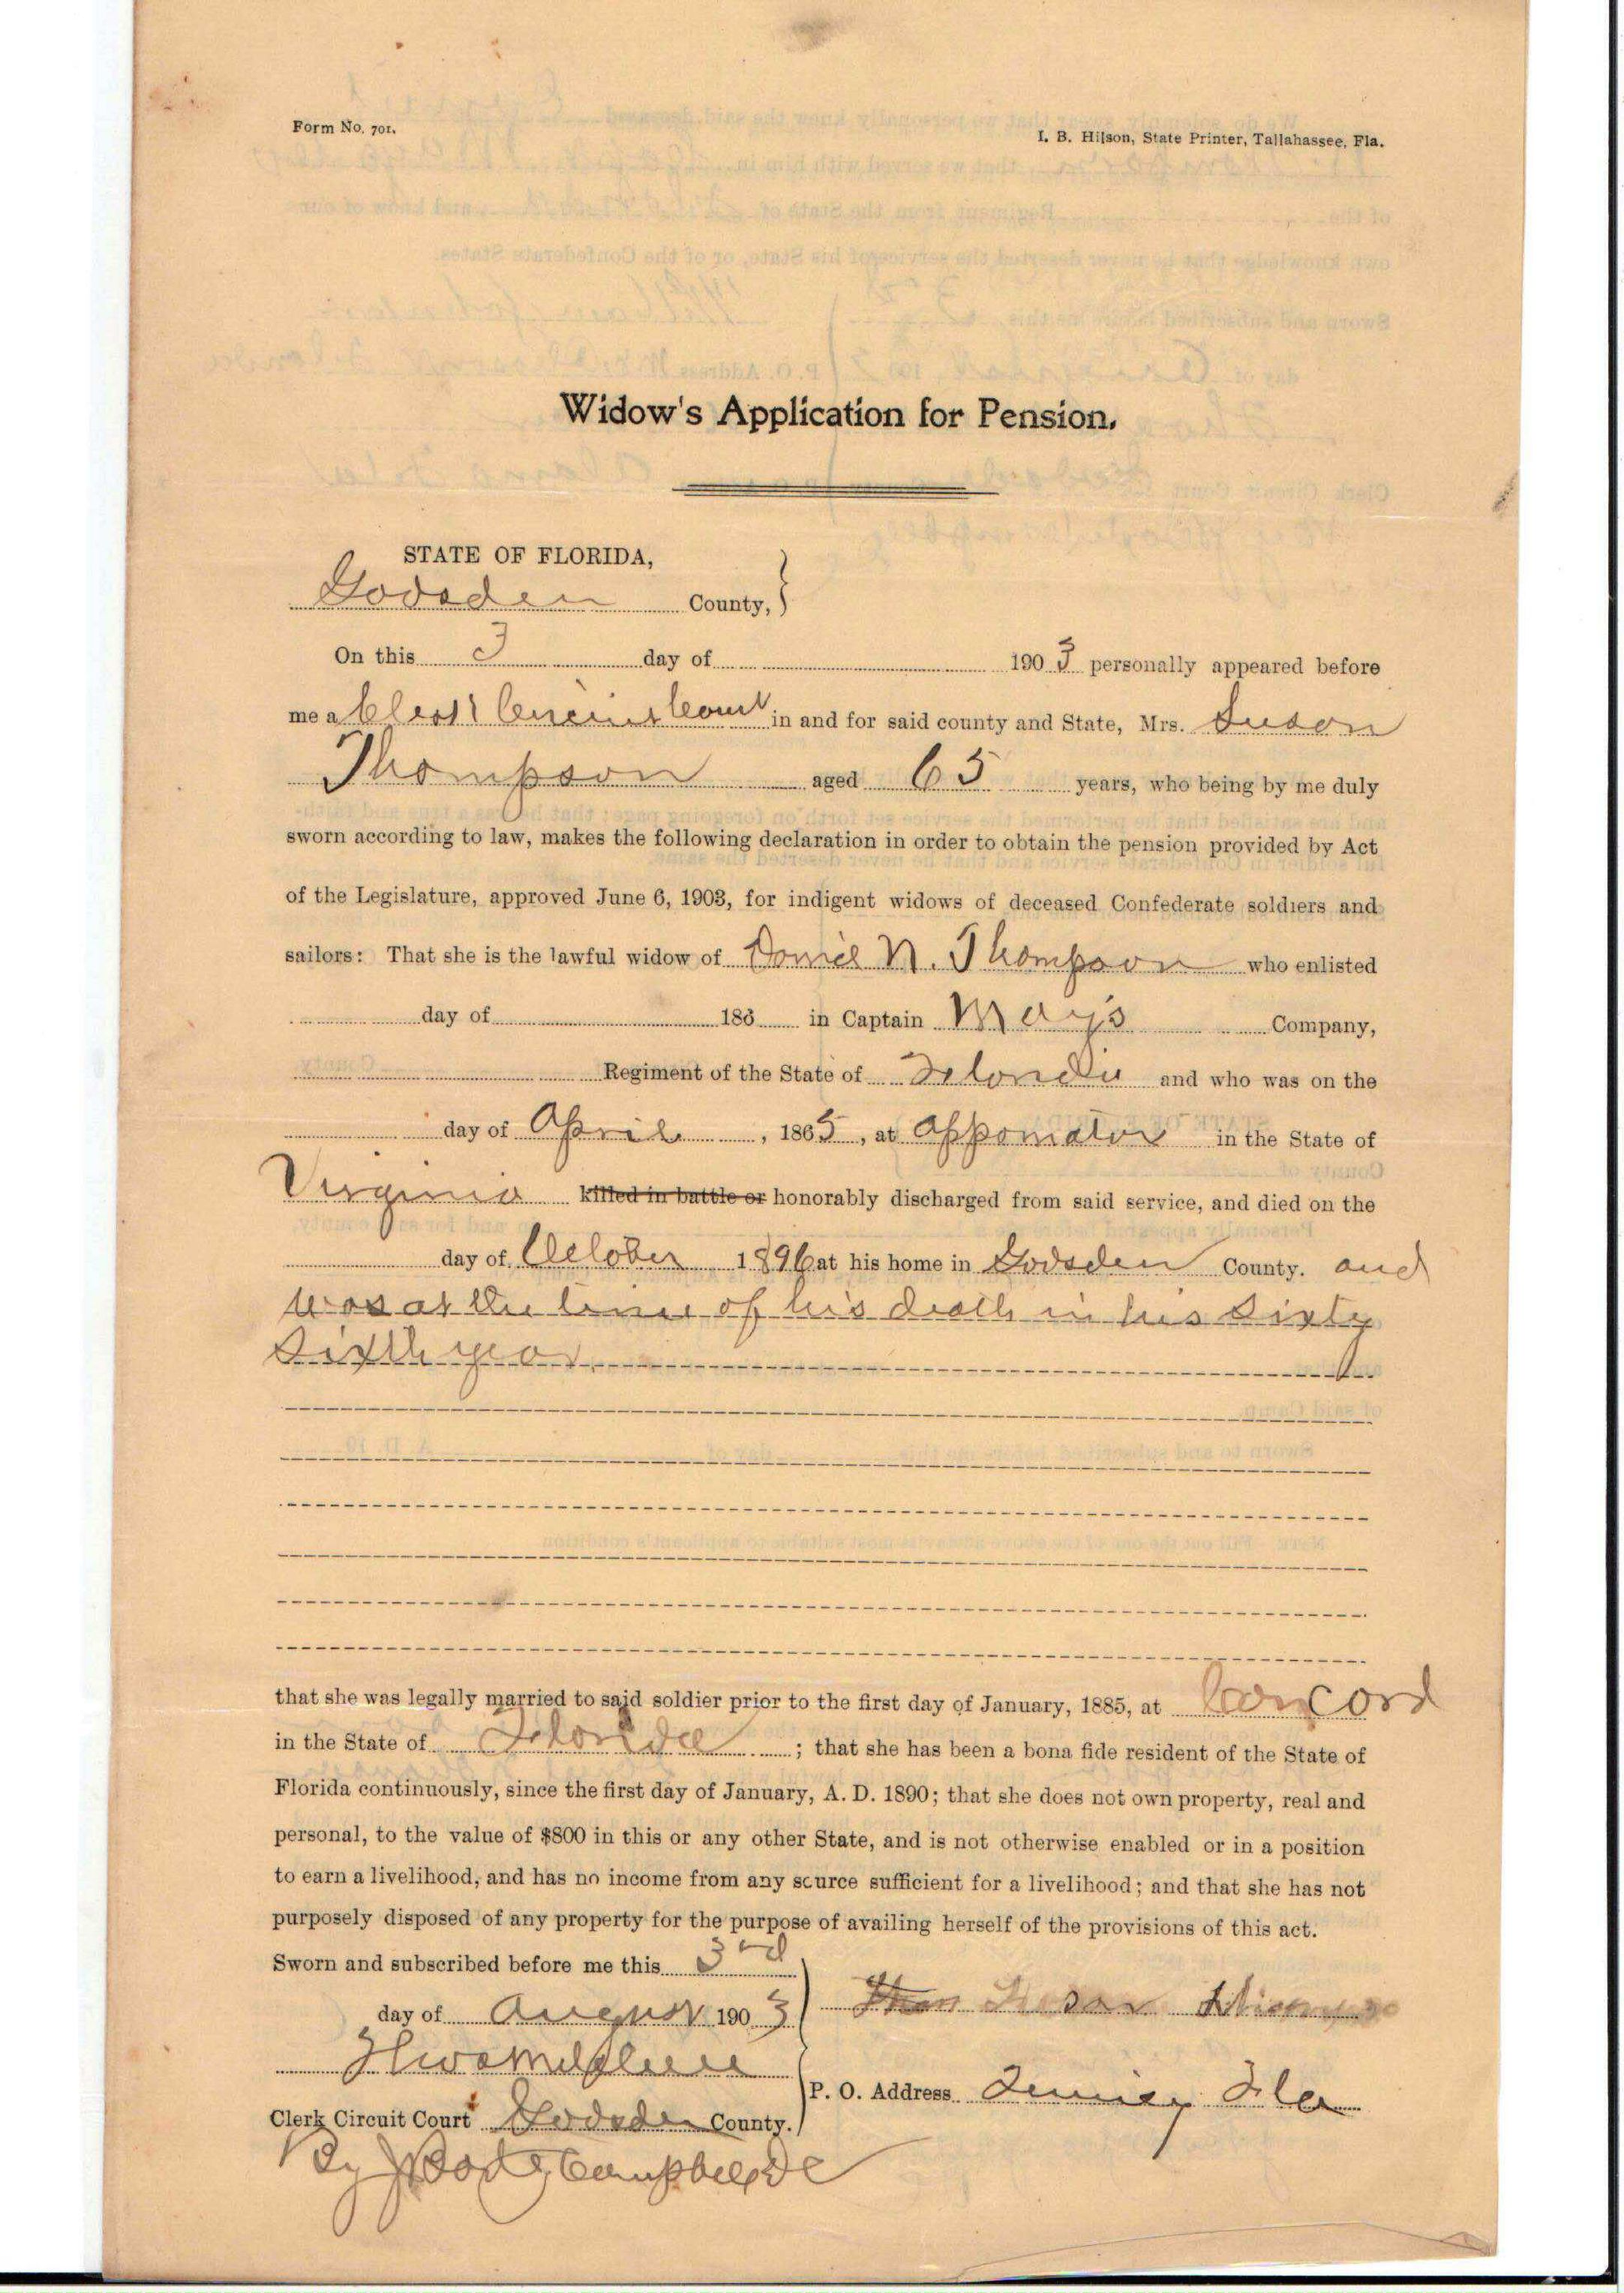 Form No. 701.
I. B. Hilson, State Printer, Tallahassee, Fla.
Widow's Application for Pension.
STATE OF FLORIDA,
Gadsden County,
On this 3 day of 1903 personally appeared before
me a Clerk Circuit Court in and for said county and State, Mrs. Susan
Thompson aged 65 years, who being by me duly
sworn according to law, makes the following declaration in order to obtain the pension provided by Act
of the Legislature, approved June 6, 1903, for indigent widows of deceased Confederate soldiers and
sailors: That she is the lawful widow of Daniel N. Thompson who enlisted
day of 186 in Captain Mays Company,
Regiment of the State of Florida and who was on the
day of April, 1865, at Appomatox in the State of
Virginia killed in battle or honorably discharged from said service, and died on the
day of October 1896 at his home in Gadsden County. and
was at the time of his death in his sixty
sixth year.
that she was legally married to said soldier prior to the first day of January, 1885, at Concord
in the State of Florida; that she has been a bona fide resident of the State of
Florida continuously, since the first day of January, A. D. 1890; that she does not own property, real and
personal, to the value of $800 in this or any other State, and is not otherwise enabled or in a position
to earn a livelihood, and has no income from any scurce sufficient for a livelihood; and that she has not
purposely disposed of any property for the purpose of availing herself of the provisions of this act.
Sworn and subscribed before me this 3rd
day of August 1903
Susan
P. O. Address Fla
Clerk Circuit Court Gadsden County.
By Campbell DC